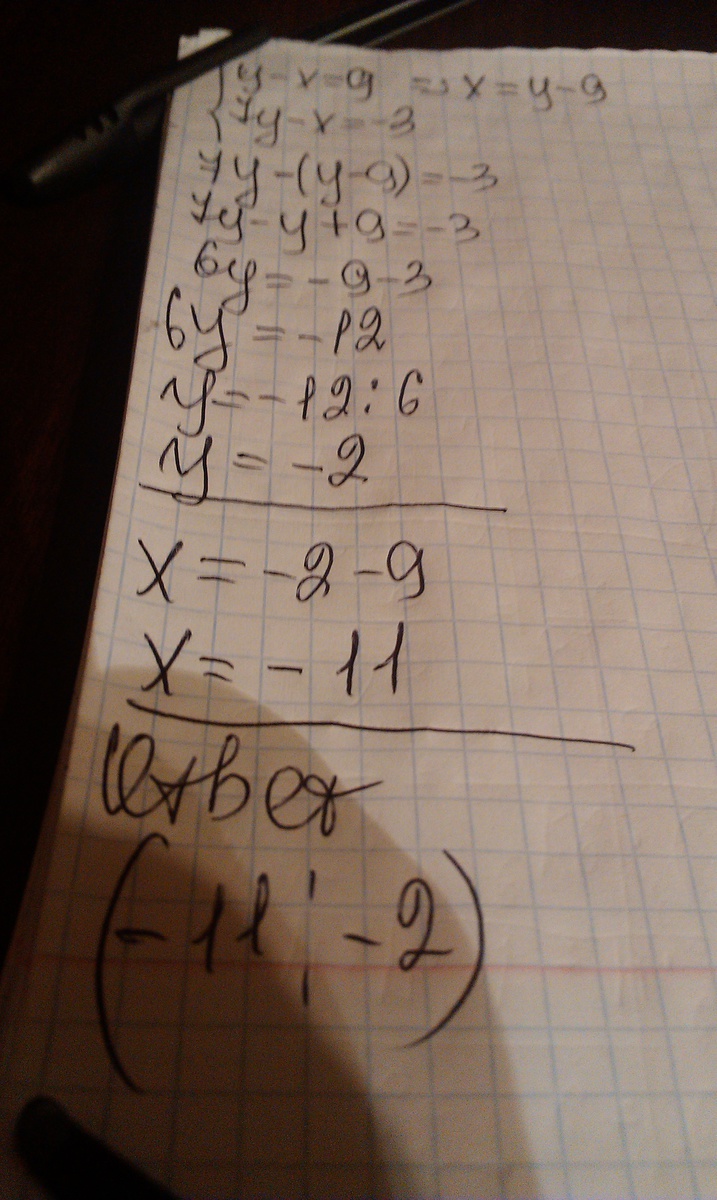 { y-x=9 => x=y-9
7y-x=-3
7y-(y-9)=-3
7y-y+9=-3
6y=-9-3
6y=-12
y=-12:6
y=-2
x=-2-9
x=-11
Ответ
(-11;-2)